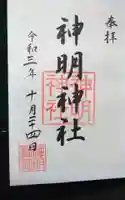 奉拝
神明神社
令和三年十月二十四日